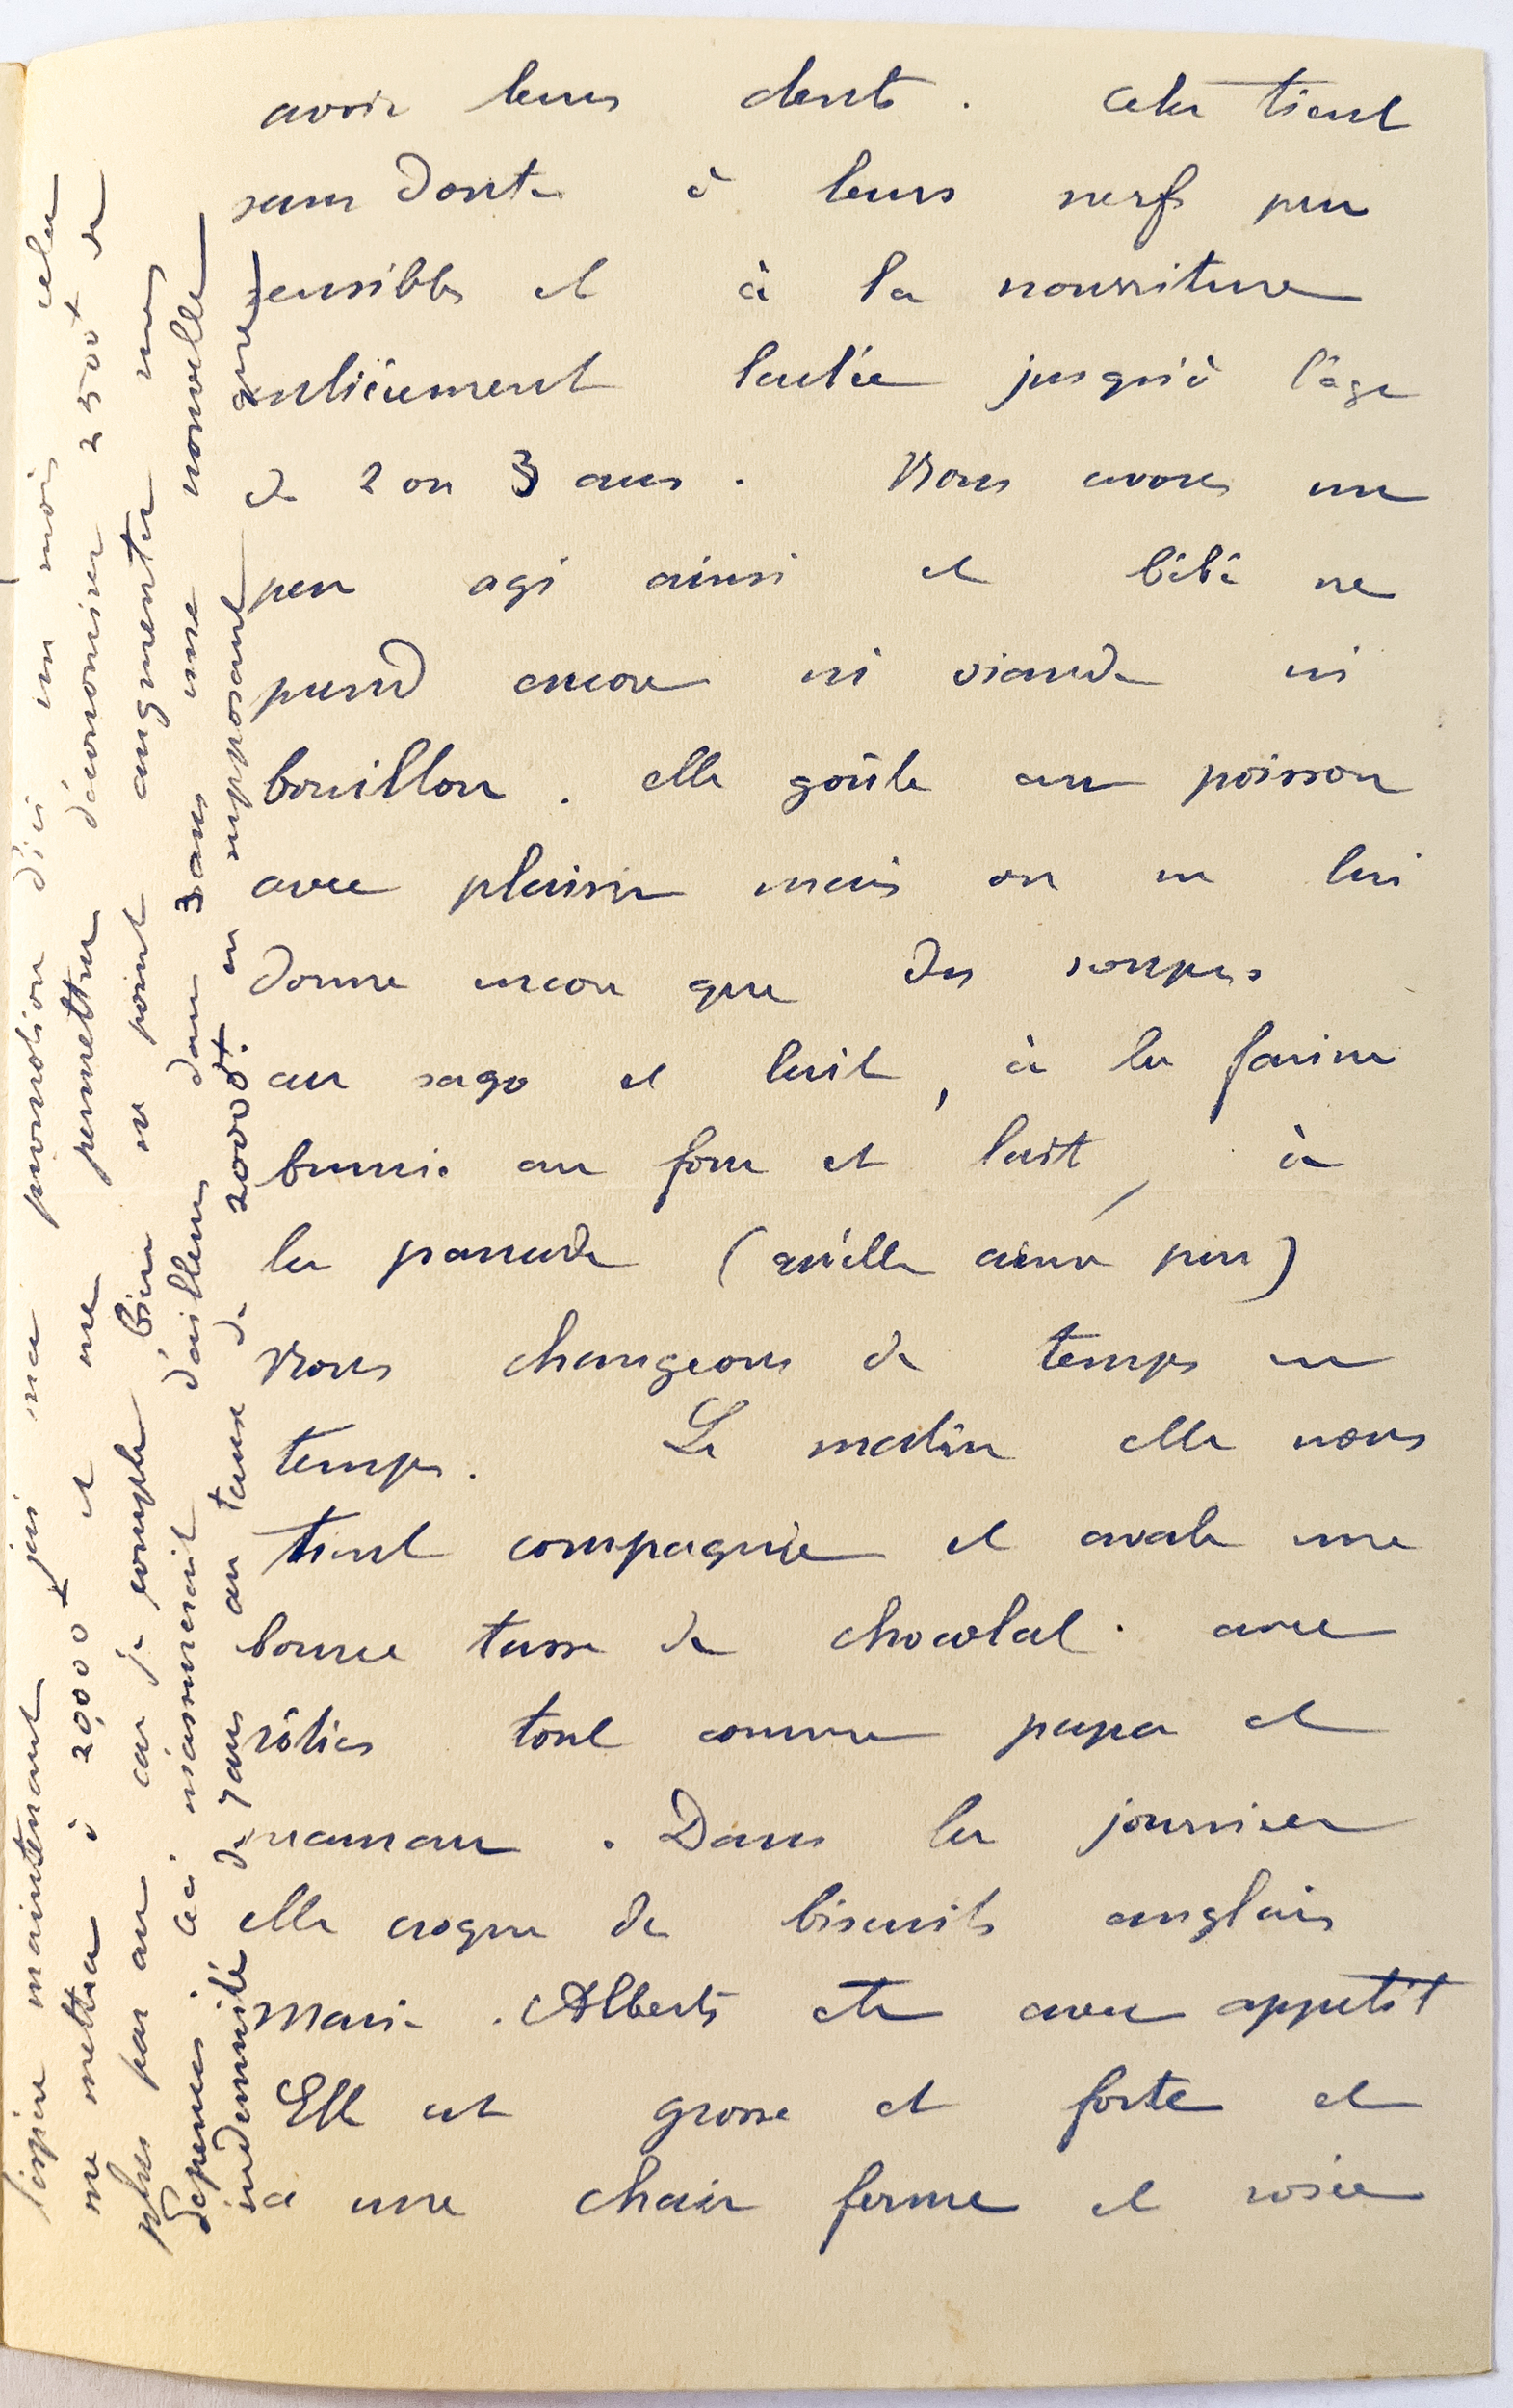 avoir leurs dents. Cela tient
sans doute à leurs nerfs peu
sensibles et à la nourriture
entièrement lactée jusqu'à l'âge
de 2 ou 3 ans. Nous avons un
peu agi ainsi et bébé ne
prend encore ni viande ni
bouillon. elle goûte au poisson
avec plaisir mais on ne lui
donne encore que des soupes
au sago et lait, à la farine
brunie au four et lait, à
la panade (qu'elle aime peu)
Nous changeons de temps en
temps. Le matin elle nous
tient compagnie et avale une
bonne tasse de chocolat. avec
rôties tout comme papa et
maman. Dans la journée
elle croque de biscuits anglais
Marie. Alberts etc avec appétit
Elle est grosse et forte et
a une chair ferme et rosée
J'espère maintenant j'ai ma promotion d'ici un mois cela
me mettra à 20,000 f et me permettra d'économiser 2500 f de
plus par an car je compte bien ne point augmenter mes
dépenses. Ceci m'assurerait d'ailleurs dans 3 ans une nouvelle
indemnité de 7 ans au taux de 20000 f. en supposant que